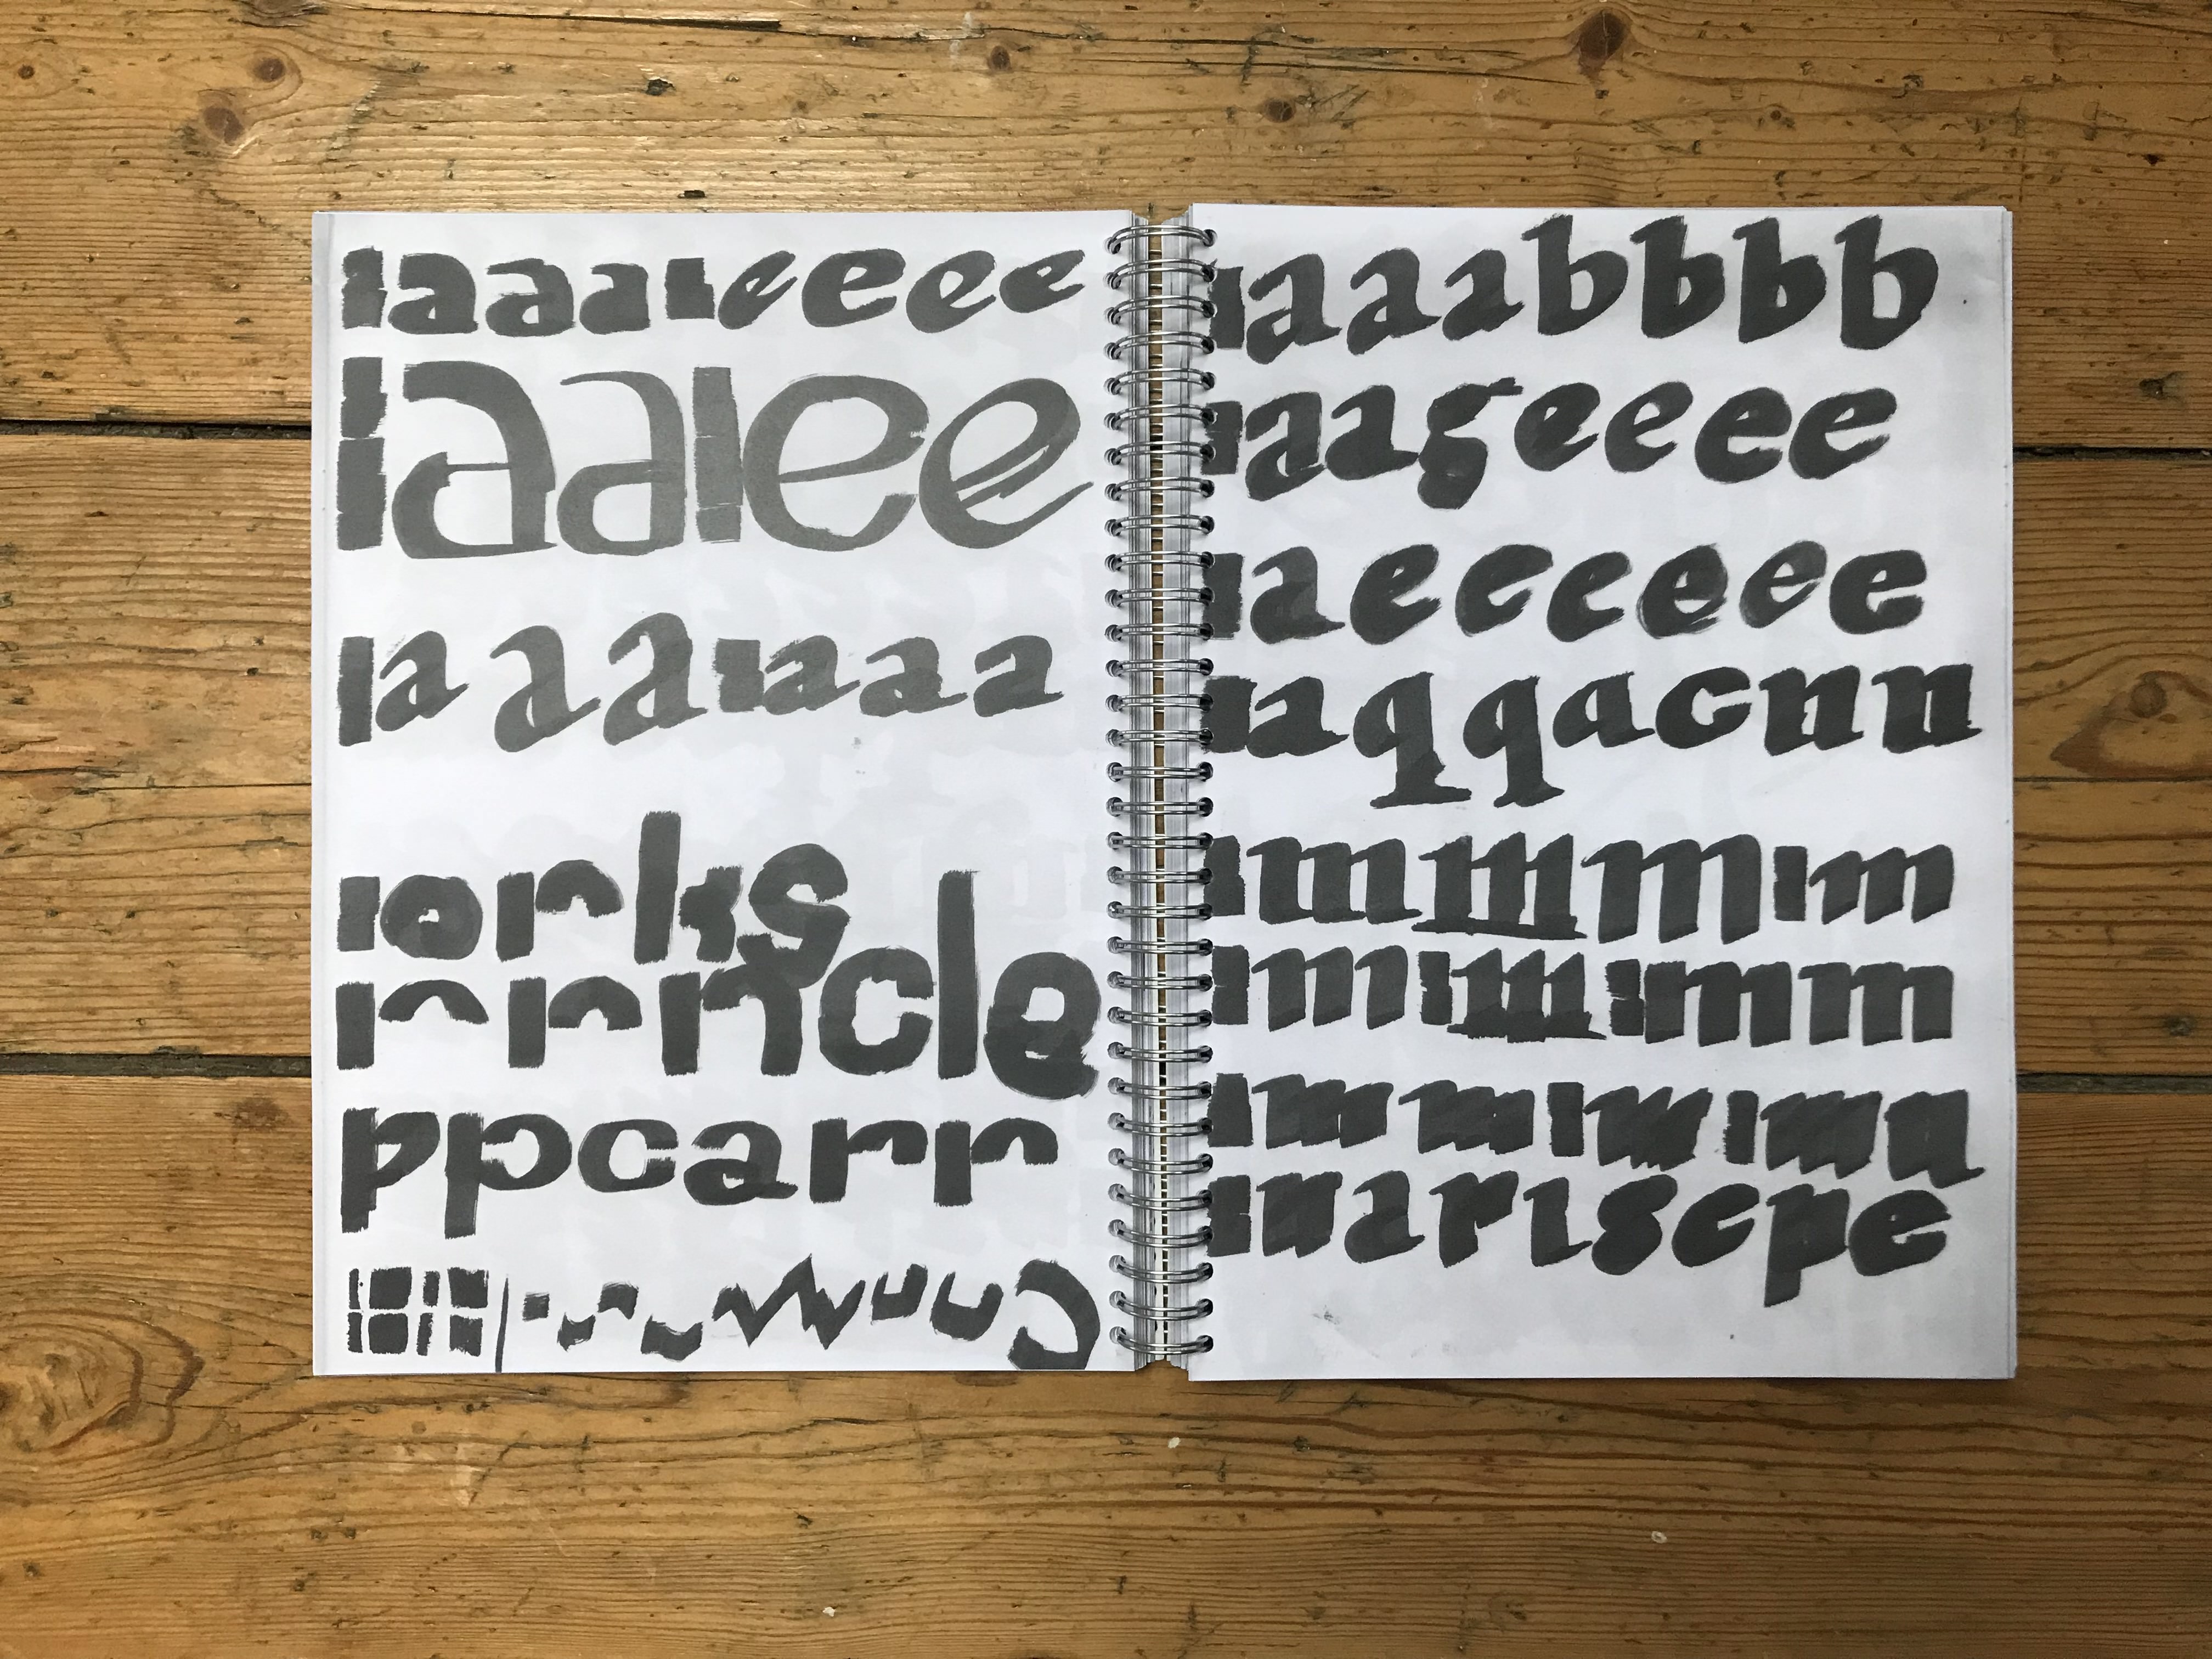 aaa eeee
aa ee
aaa aaa
orks
rrncle
ppcarr
aaabbbb
aageeee
aecceee
aqqacnn
mmm m
mm m mm
mm m mn
mariscpe